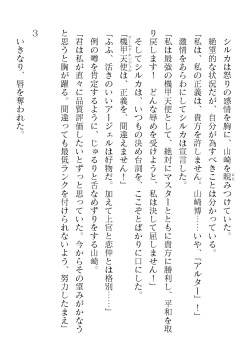 シルカは怒りの感情を胸に、山崎を睨みつけていた。
絶望的な状況だが、自分が為すべきことは分かっている。
「私は、私の正義は、貴方を許しません。山崎博……いや、『アルター』！」
激情をあらわにしてシルカは宣言した。
「私は最強の機甲天使として、絶対にマスターとともに貴方に勝利し、平和を取
り戻します！　どんな辱めを受けようと、私は決して屈しません！」
そしてシルカは、いつもの決め台詞を、ここぞとばかりに口にした。
「機甲天使は、正義を、間違えません！」
「ふふ、活きのいいアージェルは好物だ。加えて上官と恋仲とは格別……」
例の噂を肯定するように、じゅるりと舌なめずりをする山崎。
「君は私が直々に品質評価したいと思っていた。今からその望みがかなう
と思うと胸が躍る。間違っても最低ランクを付けられないよう、努力したまえ」
３
いきなり、唇を奪われた。